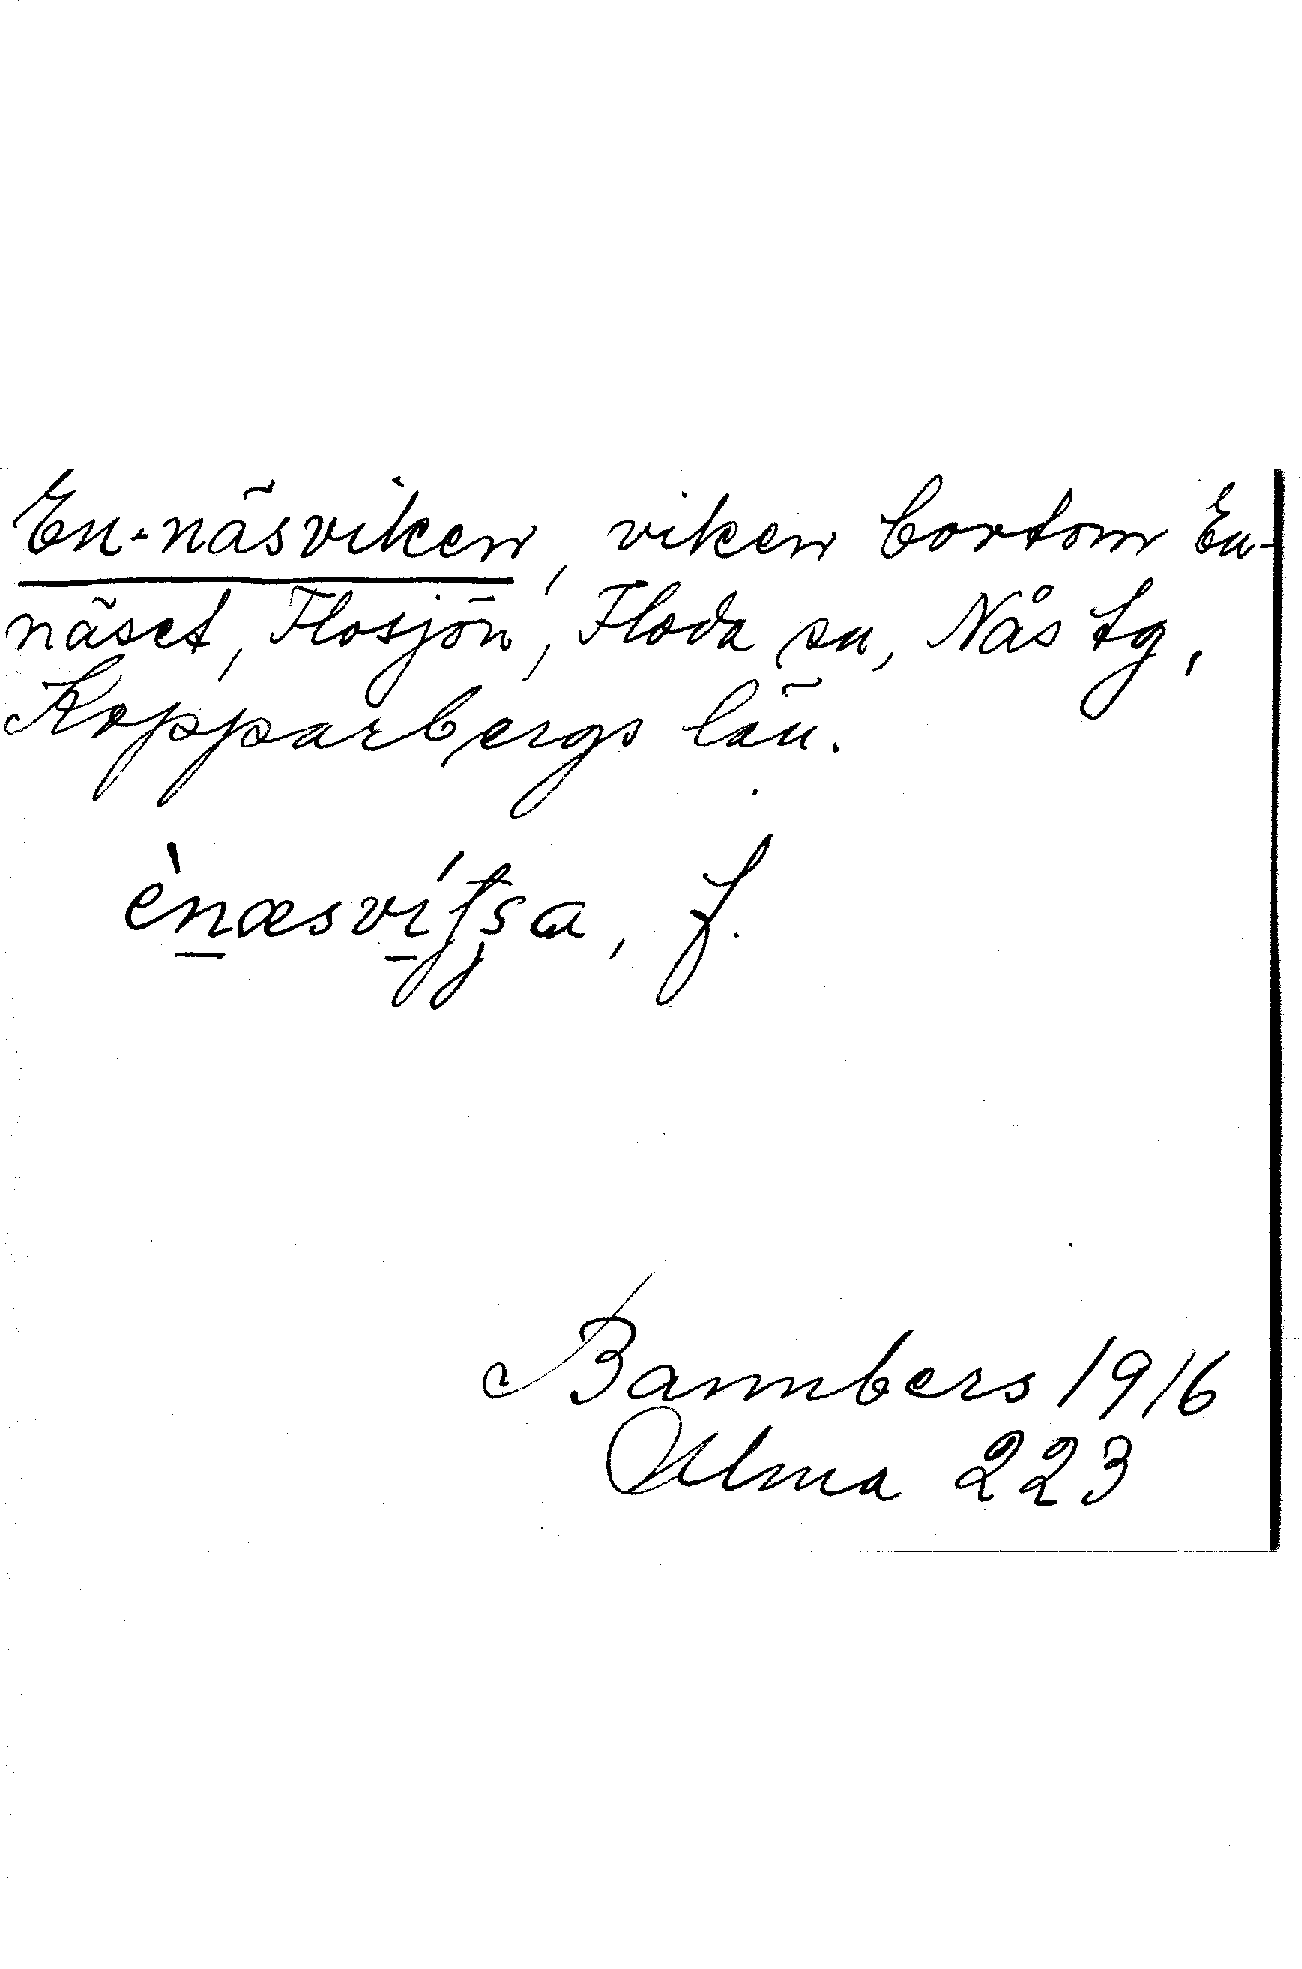 En-näsviken, viken bortom En-
näset, Flosjön, Floda sn, Nås tg,
Kopparbergs län.
ènæsvítʃsa, f.
Bannbers 1916
Ulma 223